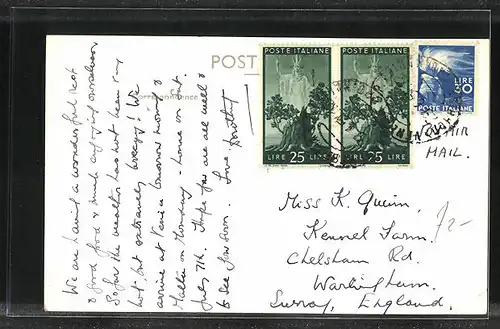 We are having a wonderful rest
& good food & much enjoying ourselves.
So far the weather has not been very
hot, but extremely breezy! We
arrive at Venice tomorrow morning
Malta on Monday - home on Sat.
July 7th. Hope you are all well &
to see you soon. Love Dorothy
POST
Correspondence
POSTE ITALIANE
LIRE 25 LIRE
POSTE ITALIANE
LIRE 25 LIRE
LIRE
30
POSTE ITALIANE
AIR
MAIL.
Miss K. Quinn,
Kennel Farm,
Chelsham Rd.
Warlingham.
Surrey, England.
7/-